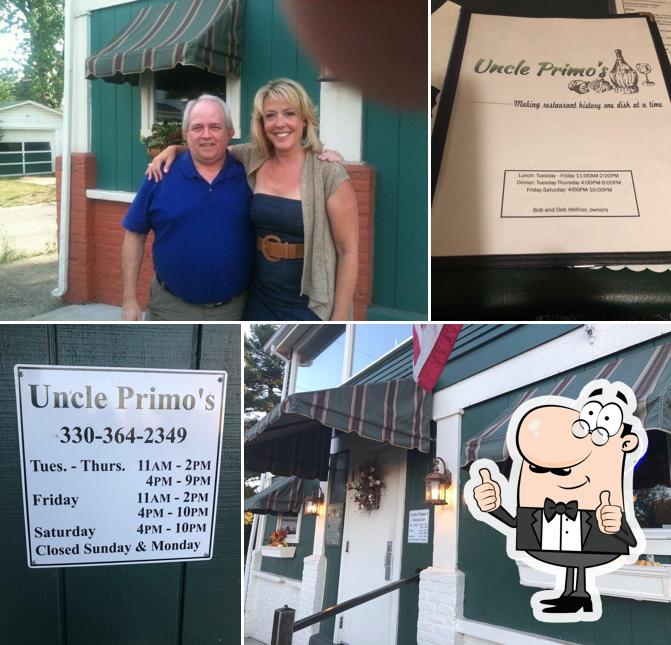 Uncle Primo's
Making restaurant history one dish at a time
Lunch: Tuesday - Friday 11:00AM-2:00PM
Dinner: Tuesday-Thursday 4:00PM-9:00PM
Friday Saturday: 4:00PM-10:00PM
Bob and Deb Helfner, owners
Uncle Primo's
330-364-2349
Tues. - Thurs. 11AM - 2PM
4PM - 9PM
Friday 11AM - 2PM
4PM - 10PM
Saturday 4PM - 10PM
Closed Sunday & Monday
Uncle Primo's